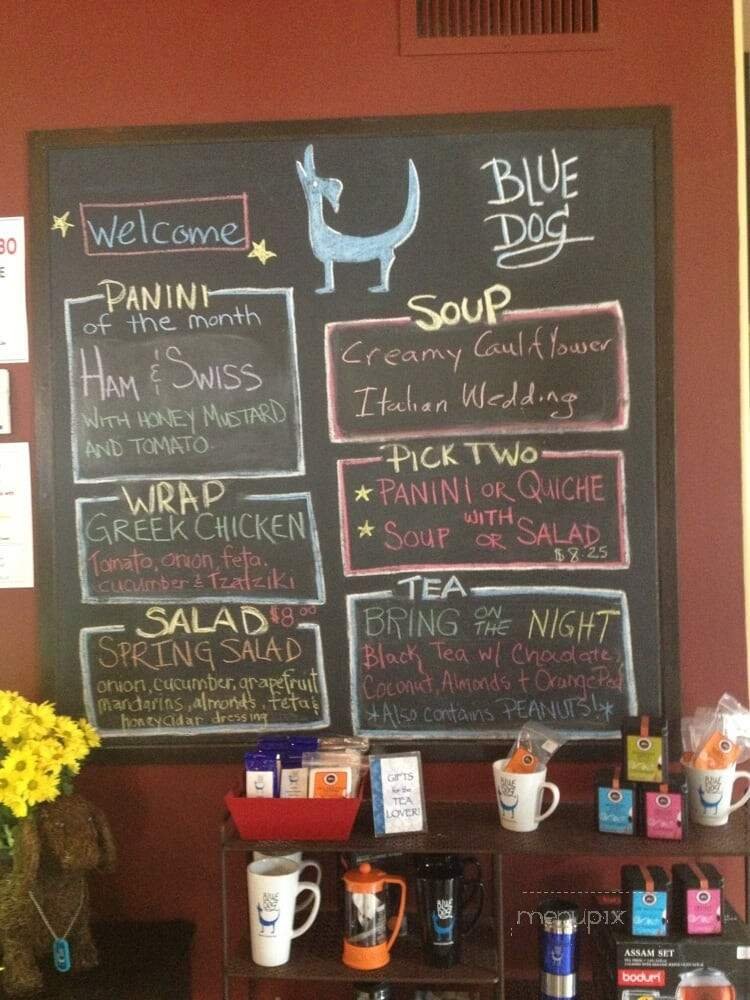 Welcome
BLUE
DOG
PANINI
of the month
HAM & SWISS
WITH HONEY MUSTARD
AND TOMATO
WRAP
GREEK CHICKEN
Tomato, onion, feta,
cucumber & Tzatziki
SALAD $8.00
SPRING SALAD
onion, cucumber, grapefruit
mandarins, almonds, feta &
honey cidar dressing
SOUP
Creamy Cauliflower
Italian Wedding
PICK TWO
PANINI OR QUICHE
WITH
SOUP OR SALAD
$8.25
TEA
BRING ON THE NIGHT
Black Tea w/ Chocolate,
Coconut, Almonds + Orange Peel
*Also contains PEANUTS!*
30
E
GIFTS
for the
TEA
LOVER!
BLUE
DOG
BLUE
DOG
BLUE
DOG
BLUE
DOG
menupix
ASSAM SET
bodum